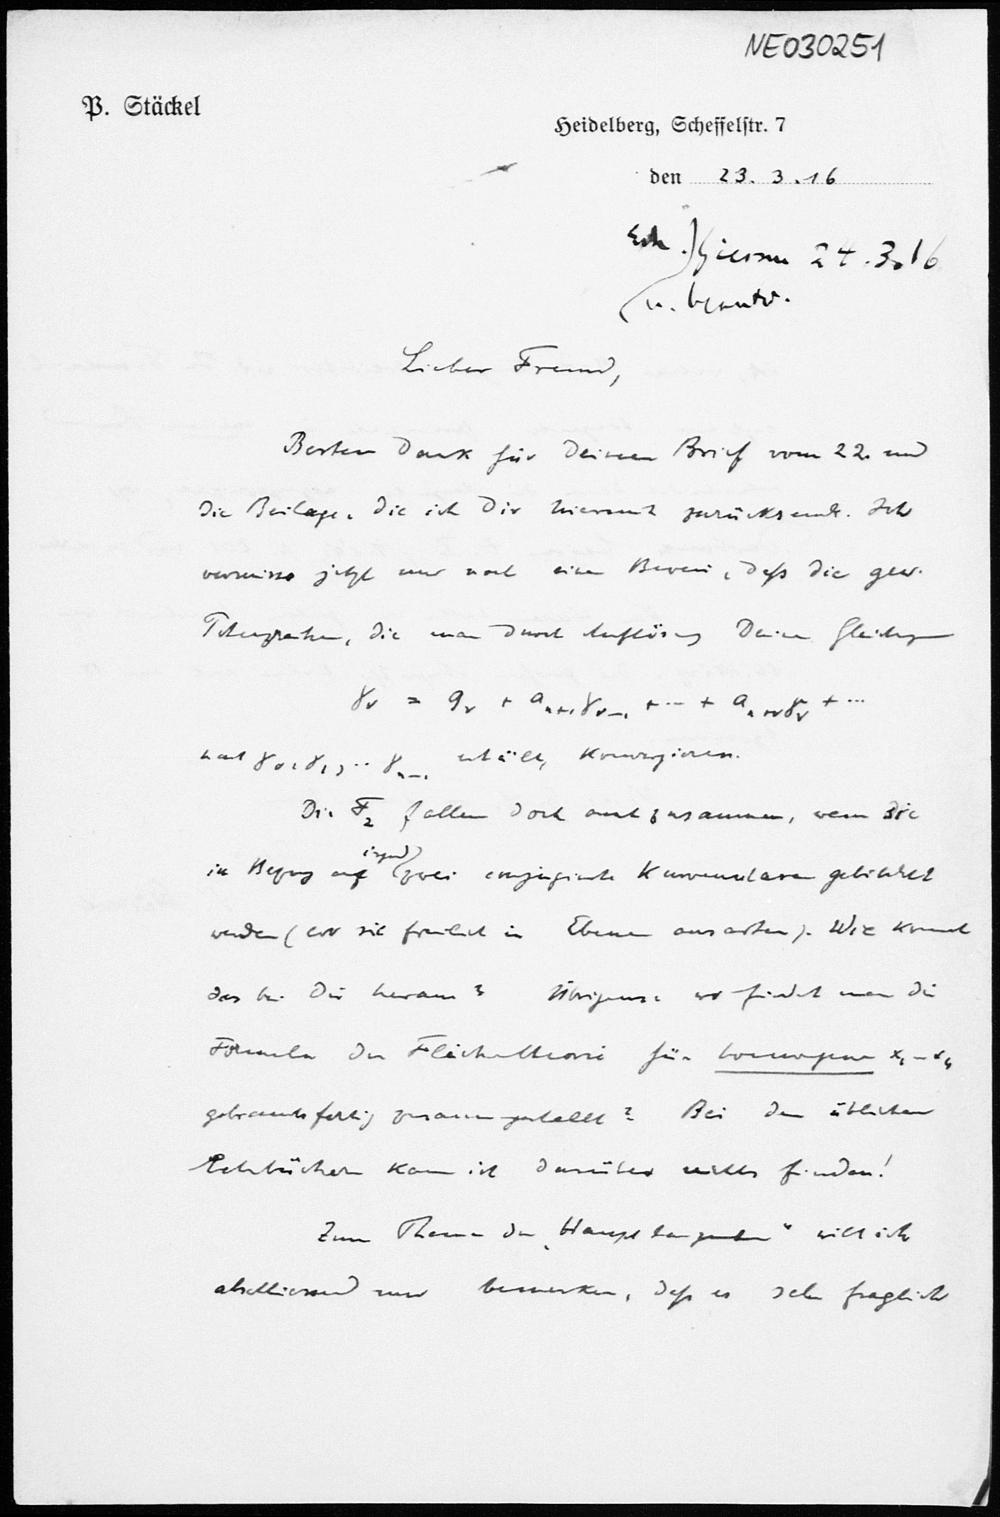 NE030251
P. Stäckel
Heidelberg, Scheffelstr. 7
den 23. 3. 16
Giessen 24.3.16
u. beantw.
Lieber Freund,
Besten Dank für Deinen Brief vom 22. und
die Beilage, die ich Dir hiermit zurücksende. Ich
vermisse jetzt nur noch einen Beweis, daß die gew.
Potenzreihen, die man durch Auflösung Deiner Gleichungen
γν = qν + an+1γν−1 + ·· + an+νγν + ···
nach γ0, γ1, ·· γn−1 erhält, konvergieren.
Die F2 fallen doch auch zusammen, wenn sie
in Bezug auf irgend zwei conjugierte Kurvenscharen gebildet
werden (wo sie freilich in Ebenen ausarten). Wie kommt
das bei Dir heraus? Übrigens: wo findet man die
Formeln der Flächentheorie für homogene x1–x4
gebrauchsfertig zusammengestellt? Bei den üblichen
Lehrbüchern kann ich darüber nichts finden!
Zum Thema der „Haupttangenten“ will ich
abschliessend nur bemerken, daß es sehr fraglich